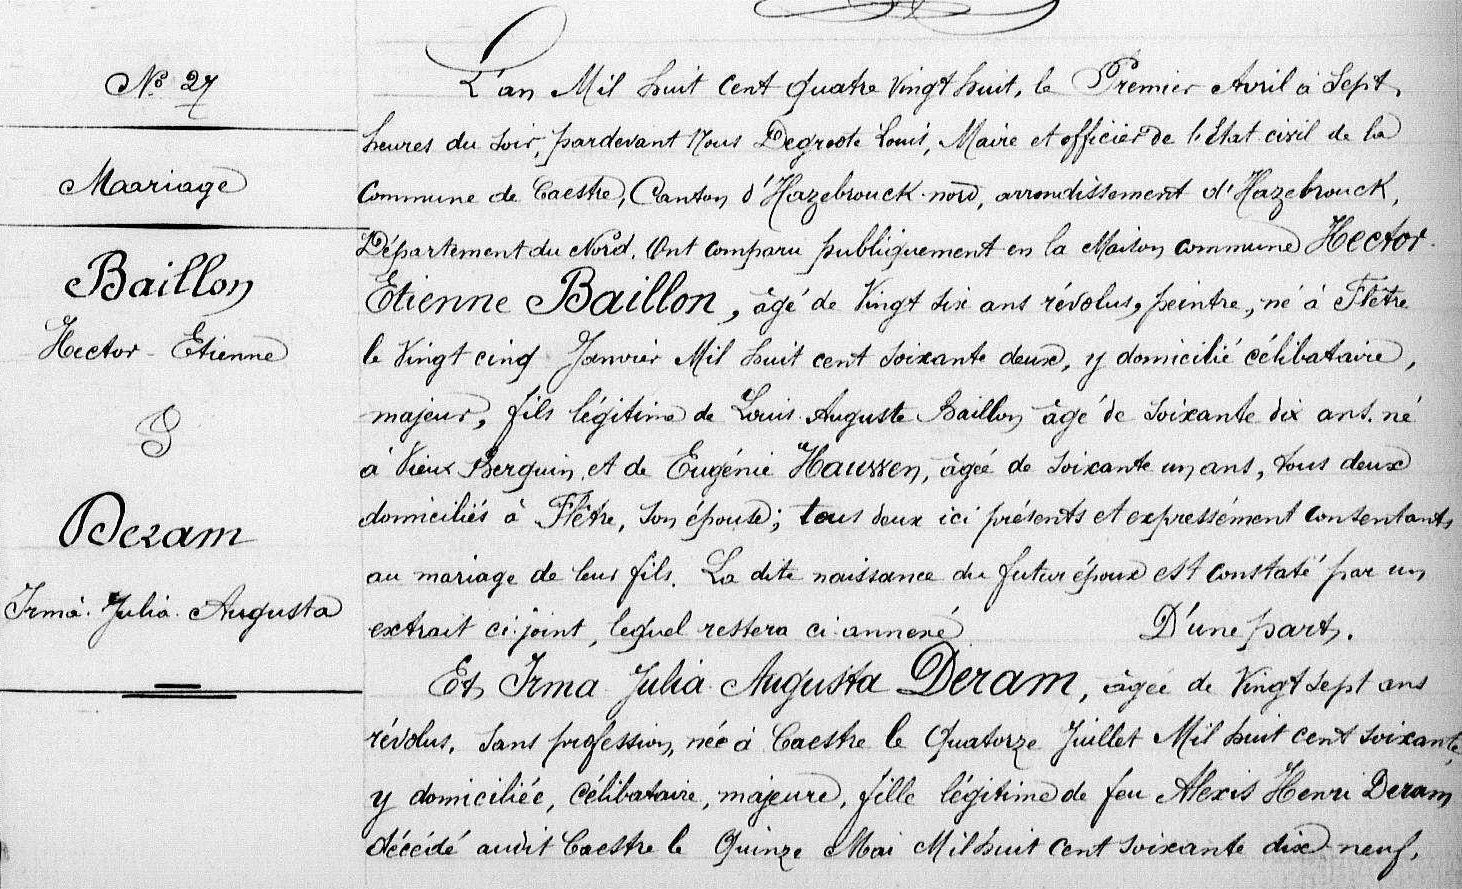 No 27
Maariage
Baillon
Hector - Etienne
&
Deram
Irma. Julia. Augusta
L'an Mil huit cent quatre vingt huit, le Premier Avril à Sept
heures du soir, pardevant Nous Degroote Louis, Maire et officier de l'Etat civil de la
Commune de Caestre, Canton d'Hazebrouck-nord, arrondissement d'Hazebrouck,
Département du Nord. Ont comparu publiquement en la Maison commune Hector-
Etienne Baillon, âgé de Vingt six ans révolus, peintre, né à Flêtre
le Vingt cinq Janvier Mil huit cent soixante deux, y domicilié célibataire,
majeur, fils légitime de Louis Auguste Baillon âgé de soixante dix ans. né
à Vieux Berquin, et de Eugénie Haussen, âgée de soixante un ans, tous deux
domiciliés à Flêtre, son épouse; tous deux ici présents et expressément consentants
au mariage de leur fils. La dite naissance du futur époux est constaté par un
extrait ci-joint, lequel restera ci-annexé D'une part.
Et Irma Julia Augusta Deram, âgée de Vingt sept ans
révolus, sans profession, née à Caestre le Quatorze Juillet Mil huit cent soixante,
y domiciliée, célibataire, majeure, fille légitime de feu Alexis Henri Deram
décédé audit Caestre le Quinze Mai Mil huit cent soixante dix neuf,